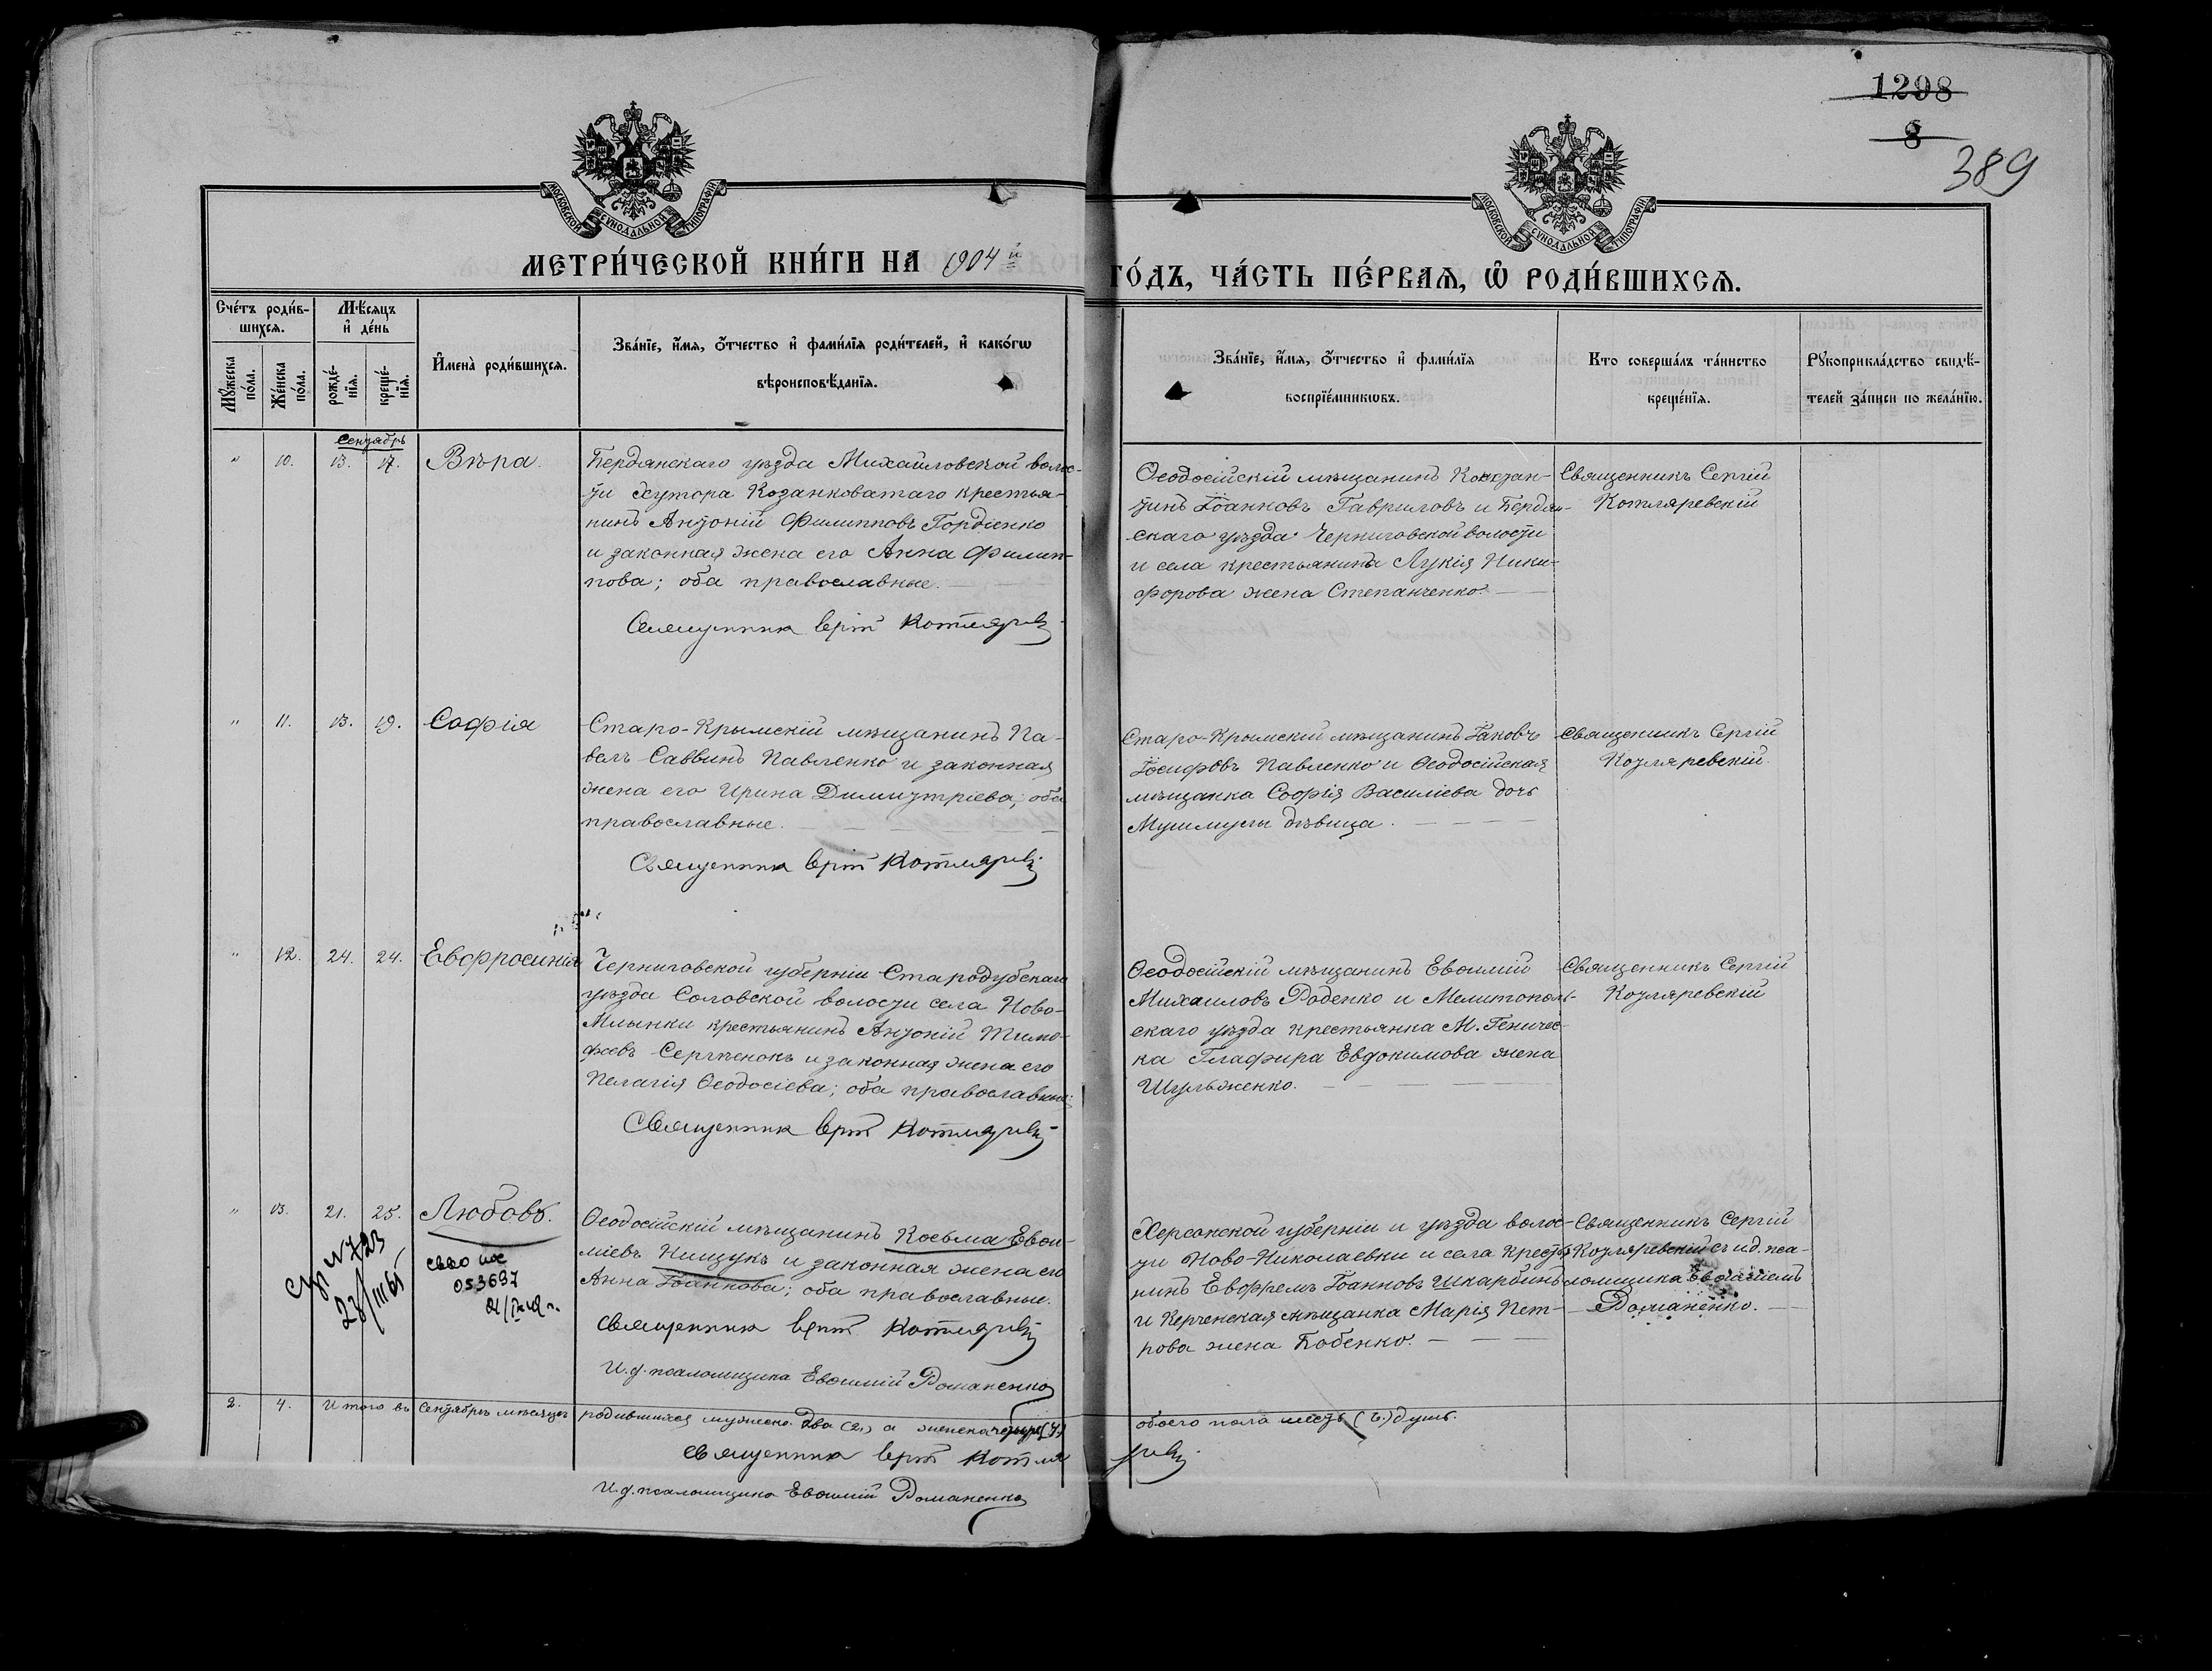 1298
8
389
МОСКОВСКОЙ СѴНОДАЛЬНОЙ ТИПОГРАФІИ
МОСКОВСКОЙ СѴНОДАЛЬНОЙ ТИПОГРАФІИ
МЕТРИ́ЧЕСКОЙ КНИ́ГИ НА 1904й
ГО́ДЪ, ЧА́СТЬ ПЕ́РВАѦ, Ѡ҆ РОДИ́ВШИХСѦ.
Сче́тъ роди́в-
шихсѧ.
Мѹ́жеска по́ла.
Же́нска по́ла.
Мѣ́сяцъ
и҆ де́нь
рожде́-
нїѧ.
креще́-
нїѧ.
И҆мена̀ роди́вшихсѧ.
Зва́нїе, и҆́мѧ, ѻ҆́тчество и҆ фами́лїѧ роди́телей, и҆ како́гѡ
вѣроисповѣ́данїѧ.
Зва́нїе, и҆́мѧ, ѻ҆́тчество и҆ фами́лїѧ
воспрїе́мникѡвъ.
Кто̀ соверша́лъ та́инство
креще́нїѧ.
Рѹкоприкла́дство свидѣ́-
телей за́писи по жела́нїю.
Сентябрь
" 10. 13. 17. Вѣра.
Бердянскаго уѣзда Михайловской волос-
ти Хутора Козанковатаго крестья-
нинъ Антоній Филипповъ Гордіенко
и законная жена его Анна Филип-
пова; оба православные.
Священникъ Сергій Котляревскій
Ѳеодосійскій мѣщанинъ Констан-
тинъ Іоанновъ Гавриловъ и Бердян-
скаго уѣзда Черниговской волости
и села крестьянина Лукія Ники-
форова жена Степанченко.
Священникъ Сергій
Котляревскій
" 11. 13. 19. Софія
Старо-Крымскій мѣщанинъ Па-
велъ Саввинъ Павленко и законная
жена его Ирина Димитріева; оба
православные.
Священникъ Сергій Котляревскій
Старо-Крымскій мѣщанинъ Іаковъ
Іосифовъ Павленко и Ѳеодосійская
мѣщанка Софія Василіева дочь
Мушмулы дѣвица.
Священникъ Сергій
Котляревскій.
" 12. 24. 24. Евфросинія
Черниговской губерніи Стародубскаго
уѣзда Соловской волости села Ново-
Млынки крестьянинъ Антоній Тимо-
феевъ Сергѣенокъ и законная жена его
Пелагія Ѳеодосіева; оба православные;
Священникъ Сергій Котляревскій
Ѳеодосійскій мѣщанинъ Евѳимій
Михаиловъ Роденко и Мелитополь-
скаго уѣзда крестьянка М. Геничес-
ка Глафира Евдокимова жена
Шульженко.
Священникъ Сергій
Котляревскій
" 13. 21. 25. Любовь.
Ѳеодосійскій мѣщанинъ Косьма Евѳи-
міевъ Нищукъ и законная жена его
Анна Іоаннова; оба православные.
Священникъ Сергій Котляревскій
И.д. псаломщика Евѳимій Романенко
Херсонской губерніи и уѣзда волос-
ти Ново-Николаевки и села кресть
нинъ Евфремъ Іоанновъ Шкарбинъ
и Керченская мѣщанка Марія Пет-
рова жена Бобенко.
Священникъ Сергій
Котляревскій съ и.д. пса-
ломщика Евѳиміемъ
Романенко.
№ 723
053697
2. 4. Итого въ Сентябрѣ мѣсяцѣ родившихся мужеска два (2.) а женска четыре (4.)
обоего пола шесть (6.) душъ.
Священникъ Сергій Котляревскій
И.д. псаломщика Евѳимій Романенко